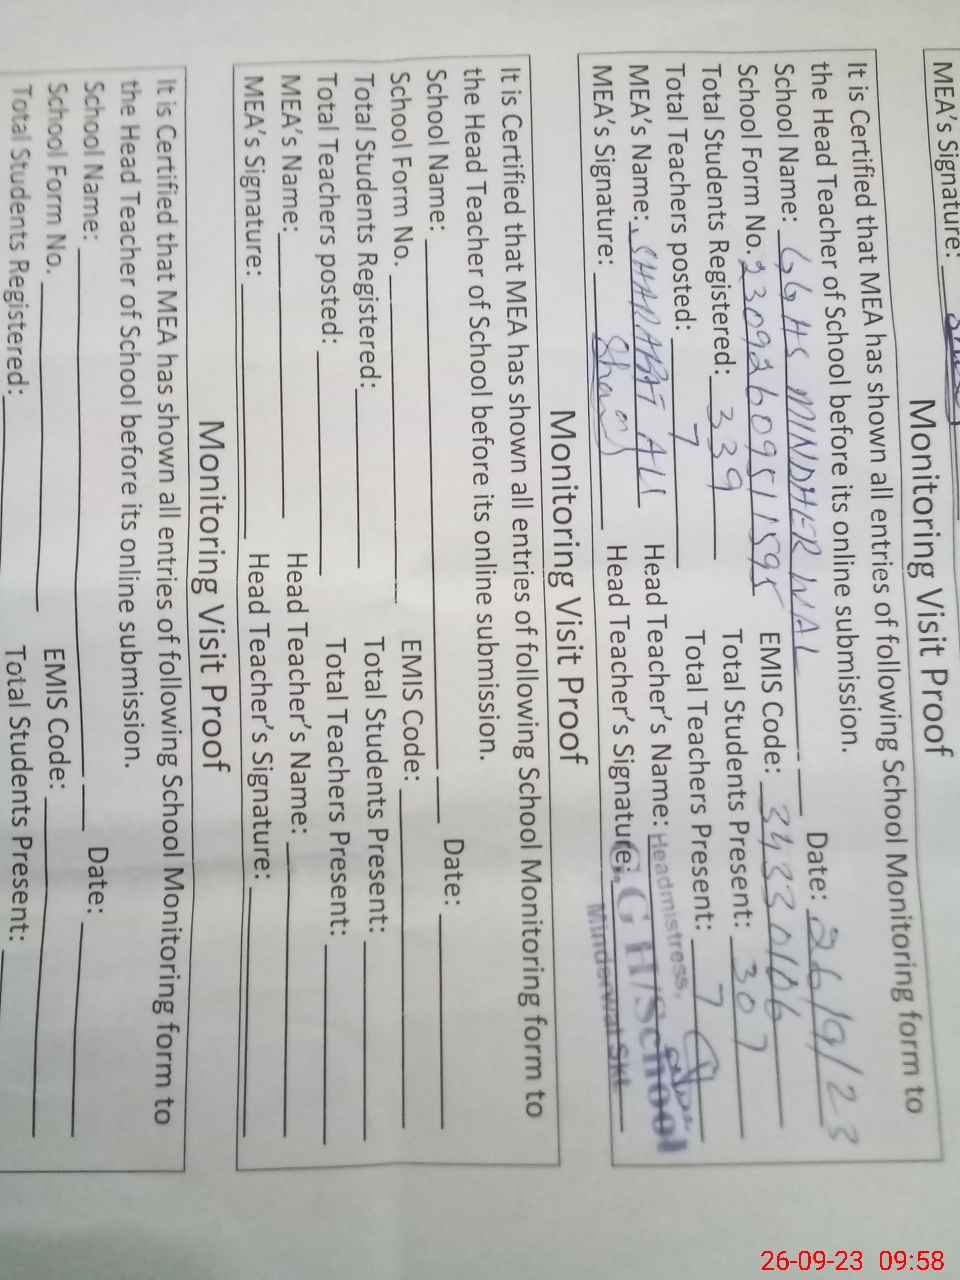 MEA's Signature:
Monitoring Visit Proof
It is Certified that MEA has shown all entries of following School Monitoring form to
the Head Teacher of School before its online submission.
School Name: GGHS MINDHERWAL Date: 26/9/23
School Form No. 23092609511595 EMIS Code: 34330106
Total Students Registered: 339 Total Students Present: 307
Total Teachers posted: 7 Total Teachers Present: 7
MEA's Name: SHARAFAT ALI Head Teacher's Name: Headmistress,
MEA's Signature: Head Teacher's Signature: G.G H/School
Minderwal Skt
Monitoring Visit Proof
It is Certified that MEA has shown all entries of following School Monitoring form to
the Head Teacher of School before its online submission.
School Name: Date:
School Form No. EMIS Code:
Total Students Registered: Total Students Present:
Total Teachers posted: Total Teachers Present:
MEA's Name: Head Teacher's Name:
MEA's Signature: Head Teacher's Signature:
Monitoring Visit Proof
It is Certified that MEA has shown all entries of following School Monitoring form to
the Head Teacher of School before its online submission.
School Name: Date:
School Form No. EMIS Code:
Total Students Registered: Total Students Present:
26-09-23 09:58